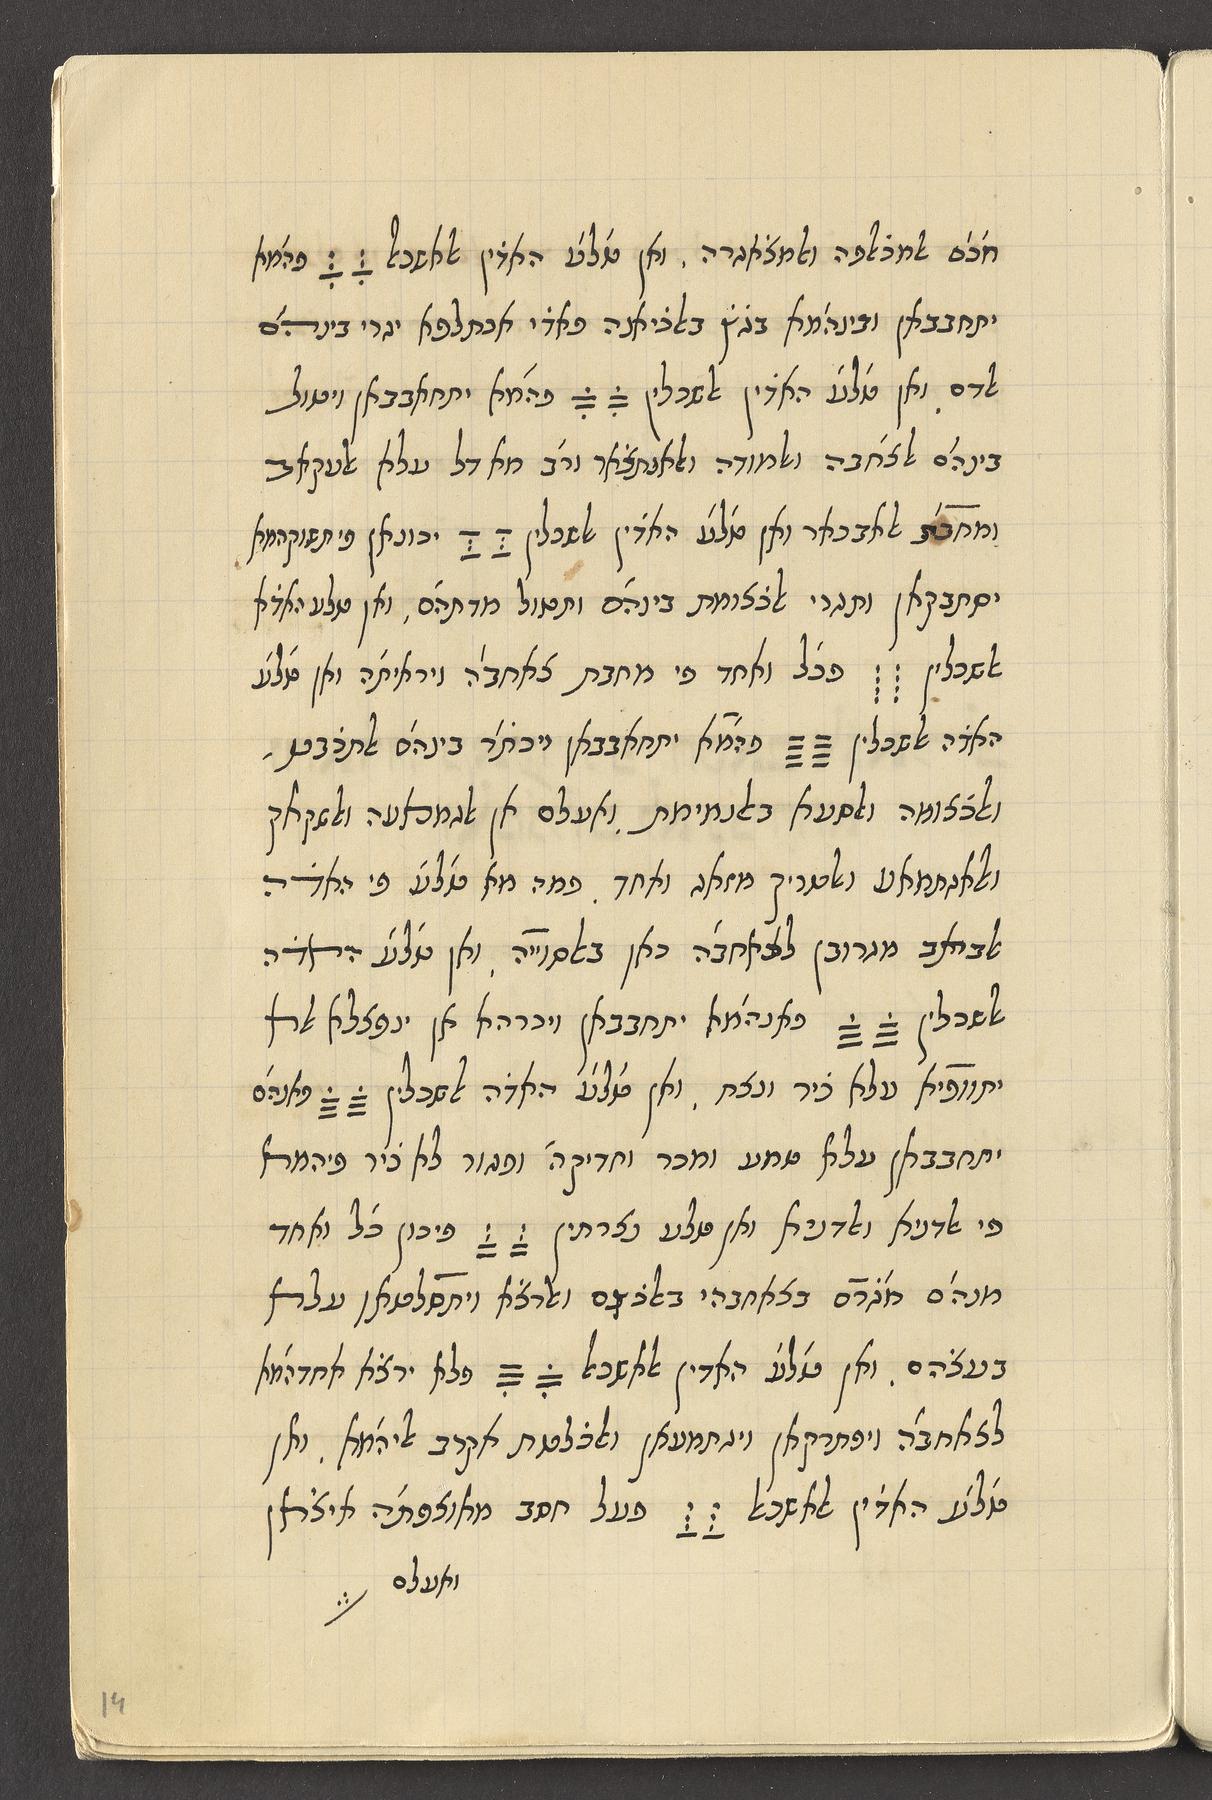 חכם אלמכאלפה ואלמצ̇אגרה . ואן טלע האד̇ין אלאשכאל פהמא
יתחבבאן ובינהמא בג̇ץ̇ באלכ̇יאנה פאד̇י אכתלפא יגרי בינהם
אלדם . ואן טלע האד̇ין אלשכלין פהמא יתחאבבאן ויטול
בינהם אלצחבה ואלמודה ואלאנתצ̇אר ורב מא דל עלא אלעקאב
ומחבת אלאבכאר ואן טלע האד̇ין אלשכלין יכונאן פי תשוקהמא
יסתבקאן ותגרי אלכ̇צומת בינהם ותטול מדתהם , ואן טלע האד̇א
אלשכלין פכל ואחד פי מחבת צאחבה ויראיתה ואן טלע
האד̇ה אלשכלין פהמא יתחאבבאן ויכת̇ר בינהם אלתכ̇בט
ואלכ̇צומה ואלסעא באלנמימת . ואעלם אן אלגמאעה ואלשקאק
ואלאגתמאע ואלטריק מזאג ואחד . פמה מא טלע פי האד̇ה
אלביאב מגרובן לצאחבה כאן באלסוייה . ואן טלע האד̇ה
אלשכלין פאנהמא יתחבבאן ויכרהא אן ינפצלא אלא
יתוופיא עלא כ̇יר ונצח . ואן טלע האד̇ה אלשכלין פאנהם
יתחבבאן עלא טמע ומכר וחדיקה ופגור לא כ̇יר פיהמא
פי אלדניא ואלדניא ואן טלע נצרתין פיכון כל ואחד
מנהם מג̇רם בצאחבהי באלכ̇צם ואלרצ̇א ויתסלטאן עלא
בעצ̇הם . ואן טלע האדין אלאשכאל פלא ירצ̇א אחדהמא
לצאחבה ויפתרקאן ויגתמעאן ואלכ̇לטת אקרב אליהמא . ואן
טלע האד̇ין אלאשכאל פעל חסב מאוצפתה איצ̇אן
ואעלם
14